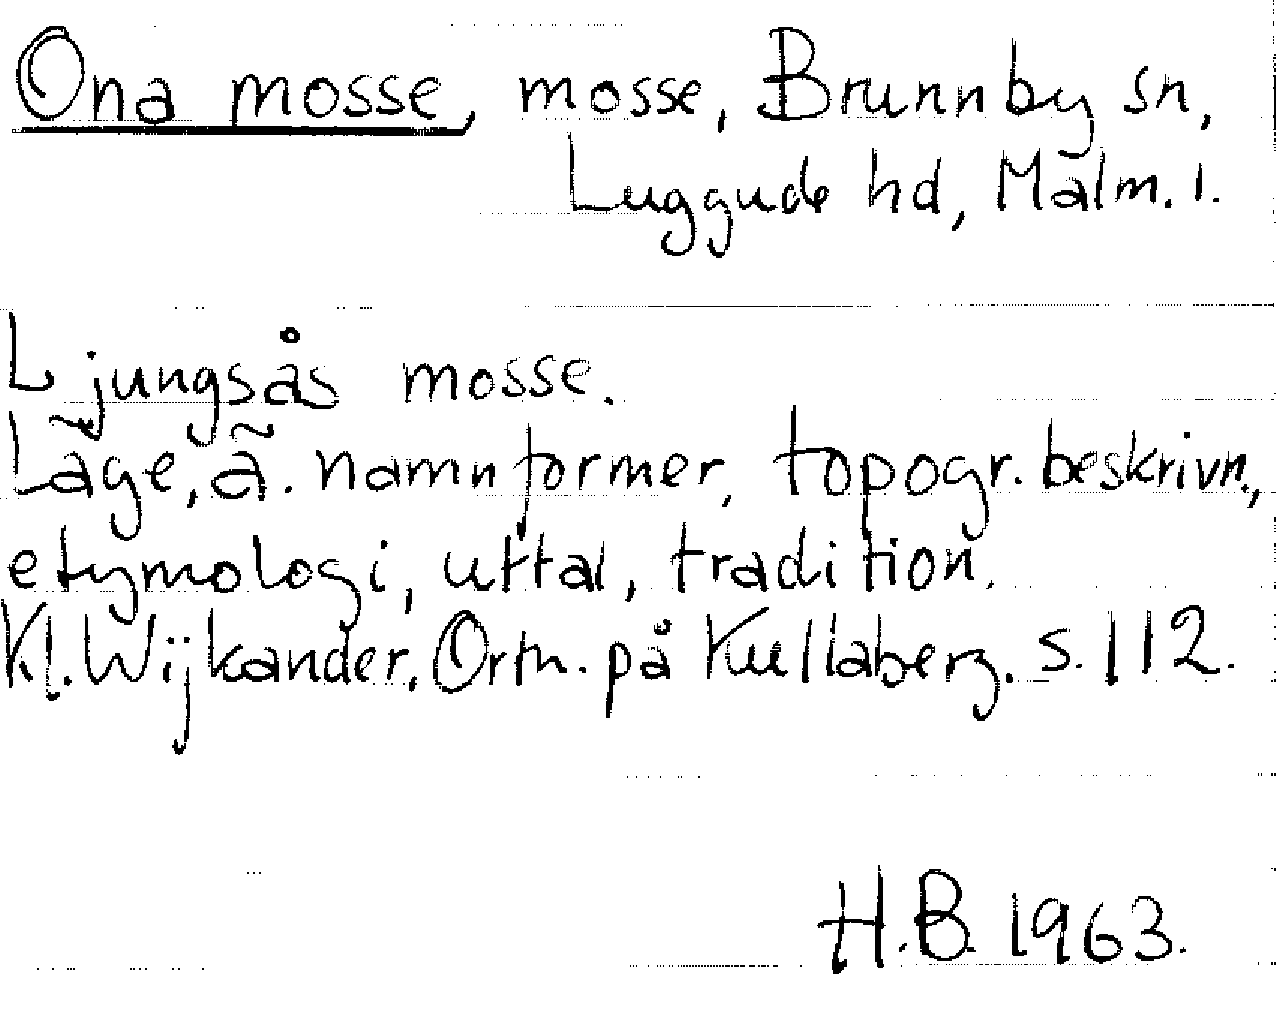 Ona mosse, mosse, Brunnby sn,
Luggude hd, Malm. l.
Ljungsås mosse.
Läge, ä. namnformer, topogr. beskrivn.,
etymologi, uttal, tradition.
Kl. Wijkander, Ortn. på Kullaberg. s. 112.
H.B. 1963.